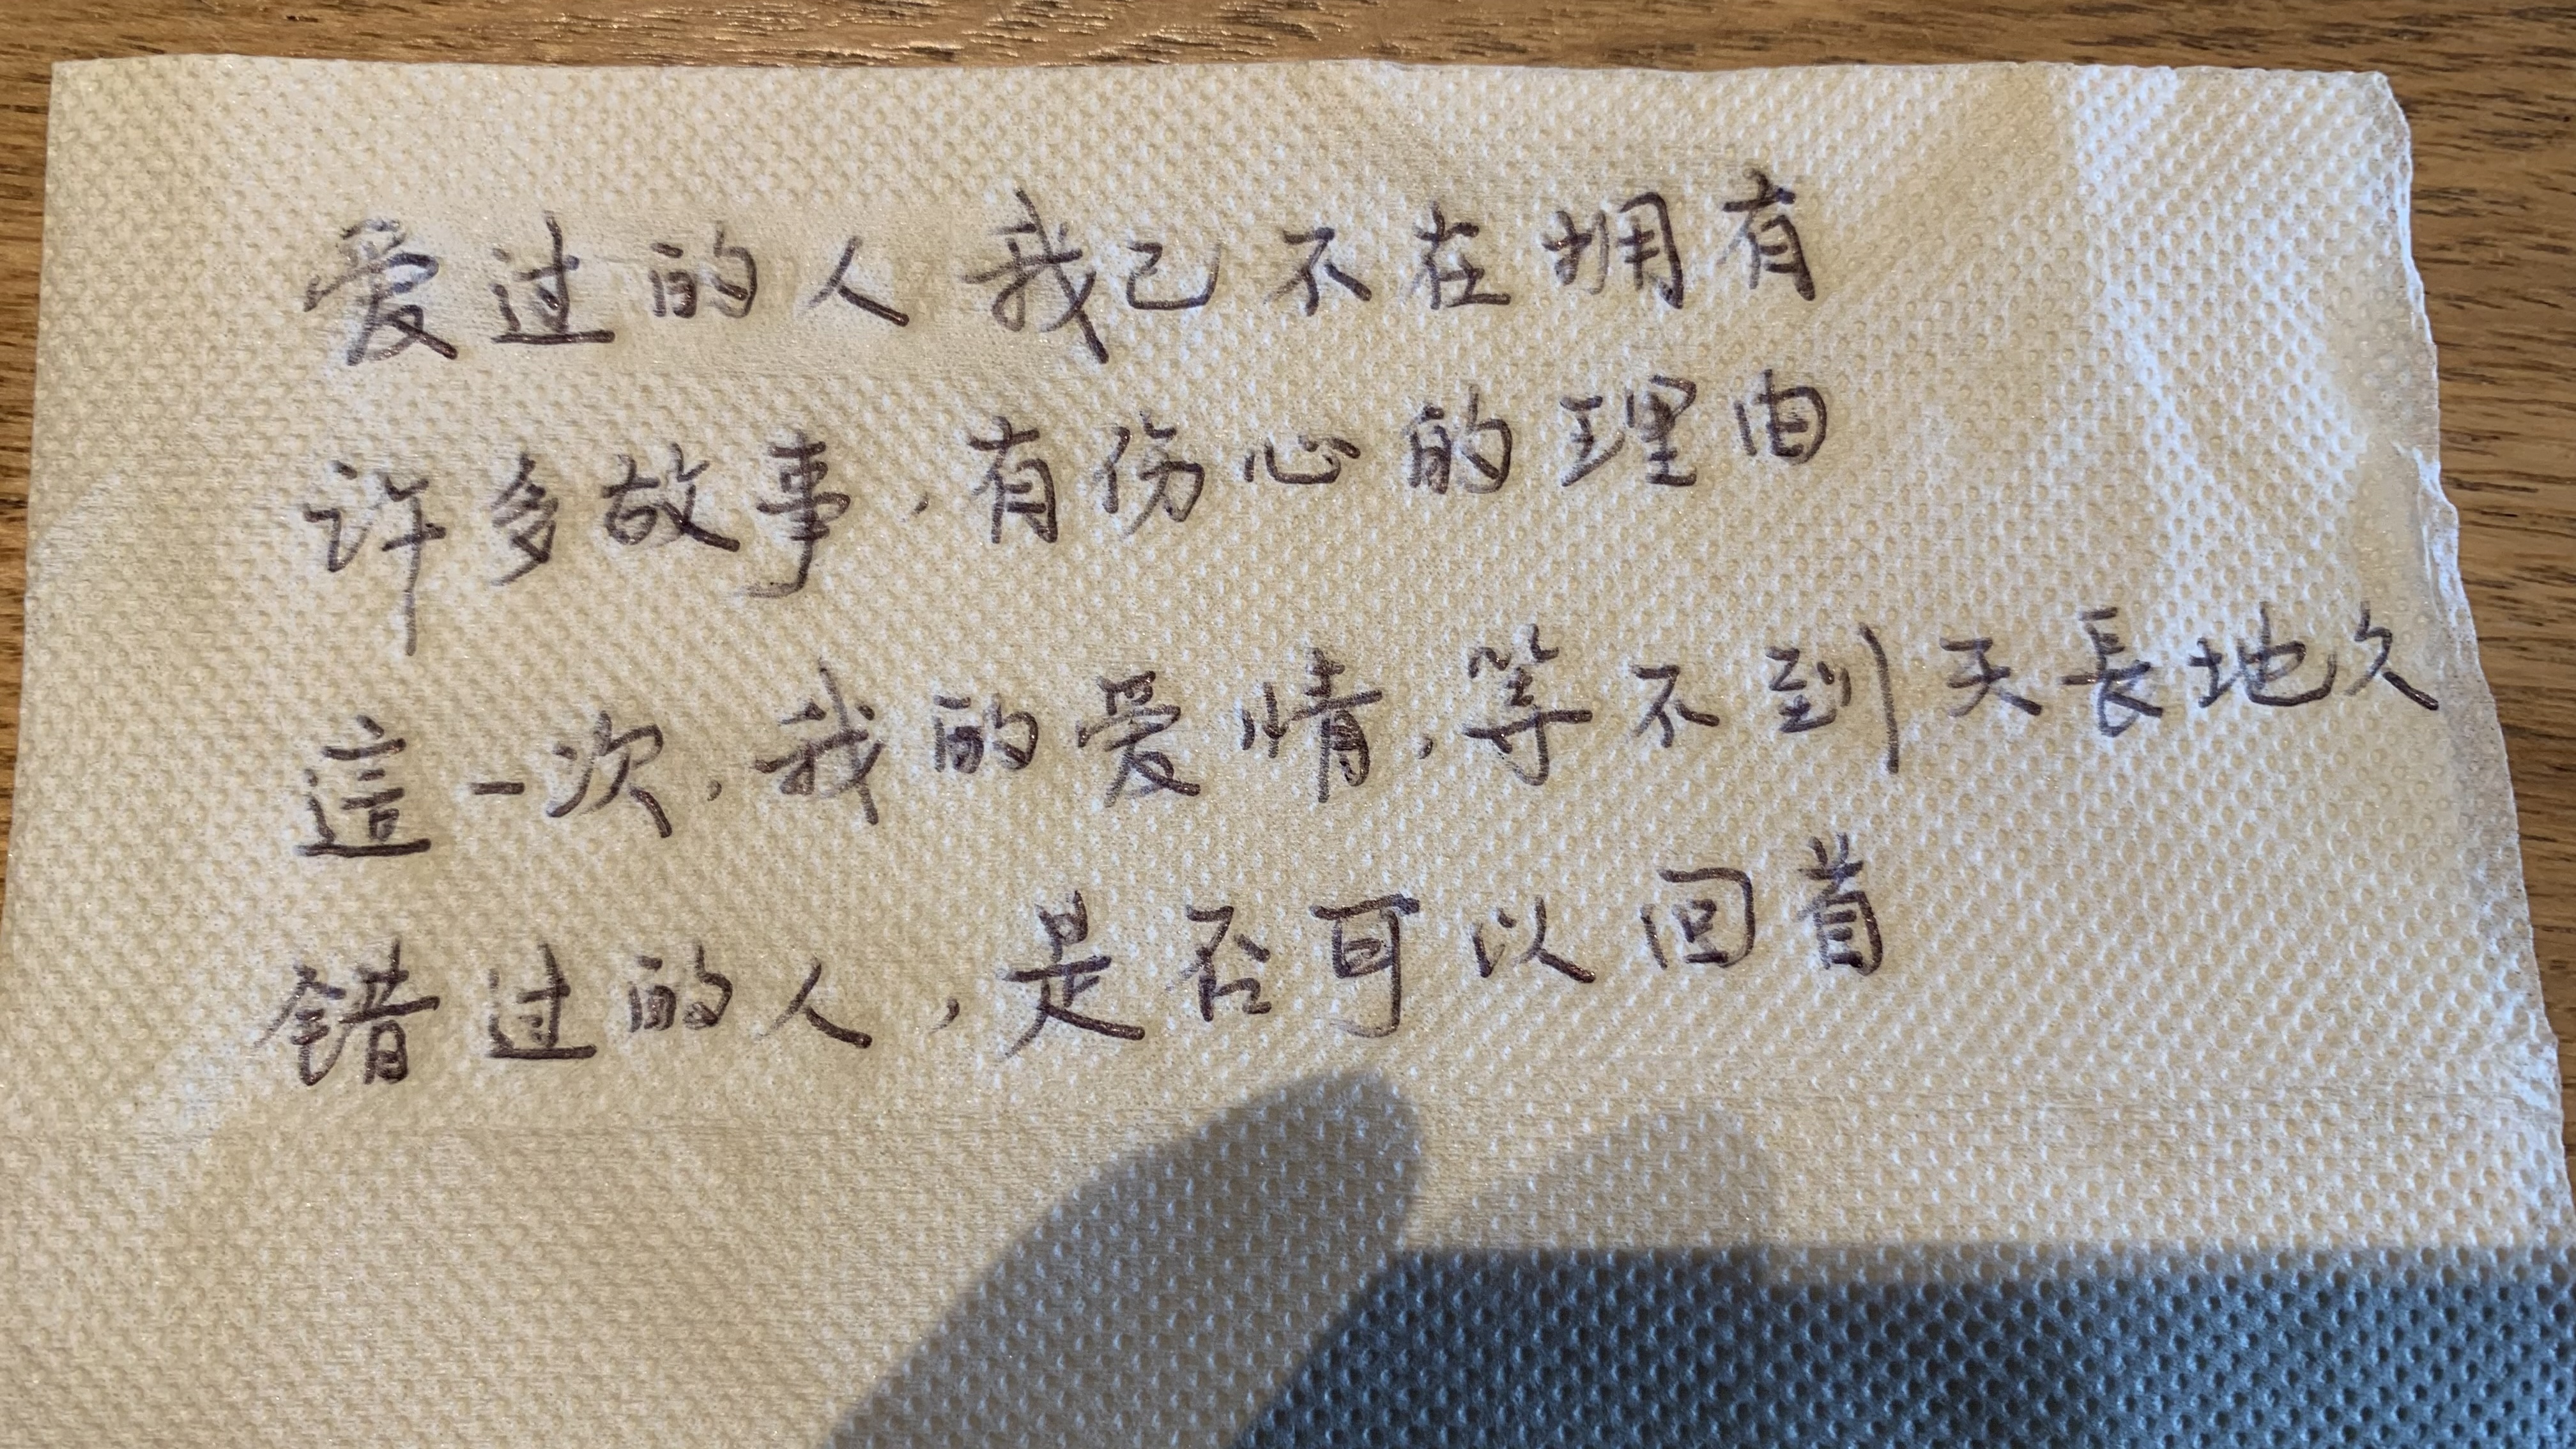 爱过的人 我已不在拥有
许多故事,有伤心的理由
這一次,我的爱情,等不到天長地久
错过的人,是否可以回首